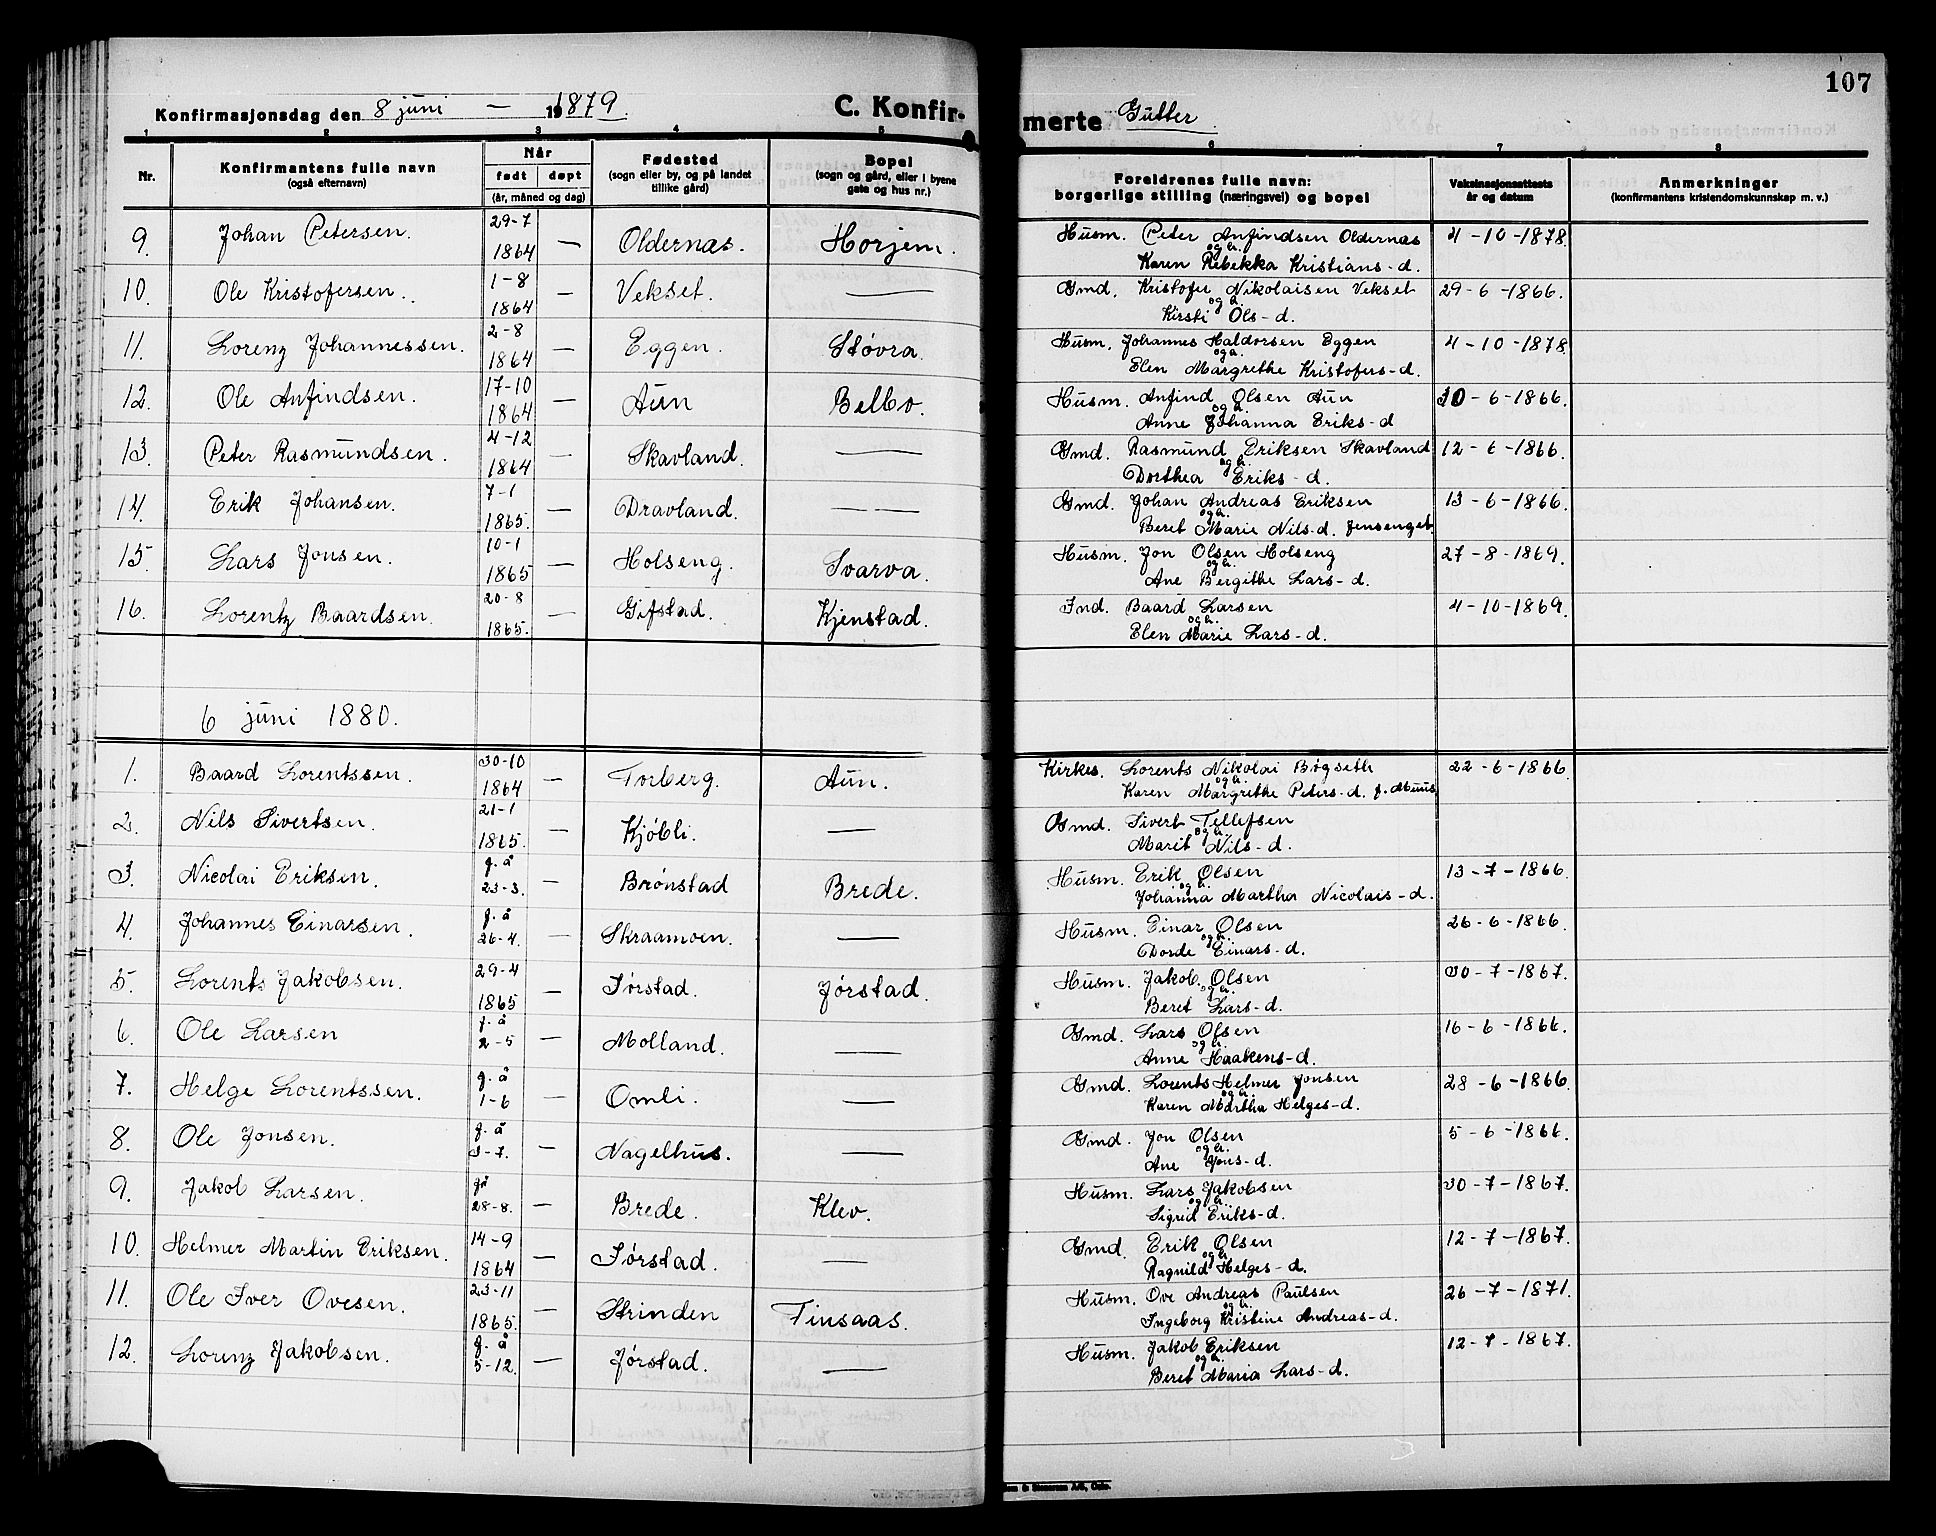 107
Konfirmasjonsdag den 8 juni — 1879. C. Konfirmerte Gutter.
1 2 3 4 5 6 7 8
Nr. Konfirmantens fulle navn (også efternavn) Når født døpt (år, måned og dag) Fødested (sogn eller by, og på landet tillike gård) Bopel (sogn og gård, eller i byene gate og hus nr.) Foreldrenes fulle navn: borgerlige stilling (næringsvei) og bopel Vaksinasjonsattests år og datum Anmerkninger (konfirmantens kristendomskunnskap m. v.)
9. Johan Petersen. 29-7 1864 — Oldernæs. Horjem. Husm. Peter Anfindsen Oldernæs og h. Karen Rebekka Kristians-d. 4-10-1878.
10. Ole Kristofersen. 1-8 1864 — Vekset. — Gmd. Kristofer Nikolaisen Vekset og h. Kirsti Ols-d. 29-6-1866.
11. Lorenz Johannessen. 2-8 1864 — Eggen. Støvra. Husm. Johannes Haldorsen Eggen og h. Elen Margrethe Kristofers-d. 4-10-1878.
12. Ole Anfindsen. 17-10 1864 — Aun Belbo. Husm. Anfind Olsen Aun og h. Anne Johanna Eriks-d 30-6-1866.
13. Peter Rasmundsen. 4-12 1864 — Skavland. — Gmd. Rasmund Eriksen Skavland og h. Dorthea Eriks-d. 12-6-1866.
14. Erik Johansen. 7-1 1865. — Dravland. — — Gmd. Johan Andreas Eriksen og h. Beret Marie Nils-d. Jensenget. 13-6-1866.
15. Lars Jonsen. 10-1 1865 — Holseng. Svarva. Husm. Jon Olsen Holseng og h. Ane Bergithe Lars-d. 27-8-1869.
16. Lorentz Baardsen. 20-8 1865. — Gifstad. Kjenstad. Ind. Baard Larsen og h. Elen Marie Lars-d. 4-10-1869.
6 juni 1880.
1. Baard Lorentssen. 30-10 1864 — Torberg. Aun. Kirkes. Lorents Nikolai Bøgseth og h. Karen Margrethe Peters-d. f. Muus 22-6-1866.
2. Nils Sivertsen. 21-1 1865. — Kjøbli. — Gmd. Sivert Tellefsen og h. Marit Nils-d.
3. Nicolai Eriksen. f. å 23-3. — Brønstad Brede. Husm. Erik Olsen og h. Johanna Martha Nicolais-d. 13-7-1866.
4. Johannes Einarsen. f. å 26-4. — Skraamoen. — Husm. Einar Olsen og h. Dorde Einars-d. 26-6-1866.
5. Lorents Jakobsen. 29-4 1865 — Jørstad. Jørstad. Husm. Jakob Olsen og h. Beret Lars-d. 30-7-1867.
6. Ole Larsen f. å 2-5 — Molland. — Gmd. Lars Olsen og h. Anne Haakens-d. 16-6-1866.
7. Helge Lorentssen. f. å 1-6 — Omli. — Gmd. Lorents Helmer Jonsen og h. Karen Martha Helges-d. 28-6-1866.
8. Ole Jonsen. f. å 3-7. — Nagelhus. — Gmd. Jon Olsen og h. Ane Jons-d. 5-6-1866.
9. Jakob Larsen. f å 28-8. — Brede. Klev. Husm. Lars Jakobsen og h. Sigrid Eriks-d. 30-7-1867.
10. Helmer Martin Eriksen. 14-9 1864 — Jørstad. — Gmd. Erik Olsen og h. Ragnild Helges-d. 12-7-1867.
11. Ole Iver Ovesen. 23-11 1865. — Strinden Finsaas. Husm. Ove Andreas Paulsen og h. Ingeborg Kristine Andreas-d. 26-7-1871.
12. Lorenz Jakobsen. f. å 5-12. — Jørstad. — Husm. Jakob Eriksen og h. Beret Maria Lars-d. 12-7-1867.